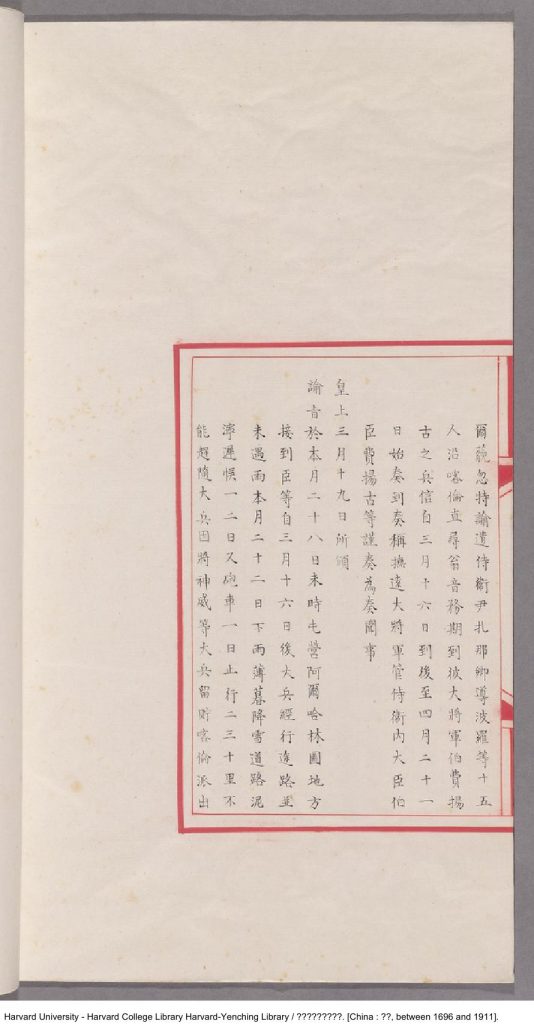 爾疏忽特諭遣侍衛尹扎那卿導波羅等十五
人沿喀倫直尋翁音務期到彼大將軍伯費揚
古之兵信自三月十六日到後至四月二十一
日始奏到奏稱撫遠大將軍管侍衛內大臣伯
臣費揚古等謹奏為奏聞事
皇上三月十九日所頒
諭旨於本月二十八日未時屯營阿爾哈林圖地方
接到臣等自三月十六日後大兵經行遠路並
未遇雨本月二十二日下雨薄暮降雪道路泥
濘遲悞一二日又砲車一日止行二三十里不
能趕隨大兵因將神威等大兵留貯喀倫派出
Harvard University - Harvard College Library Harvard-Yenching Library / ?????????. [China : ??, between 1696 and 1911].